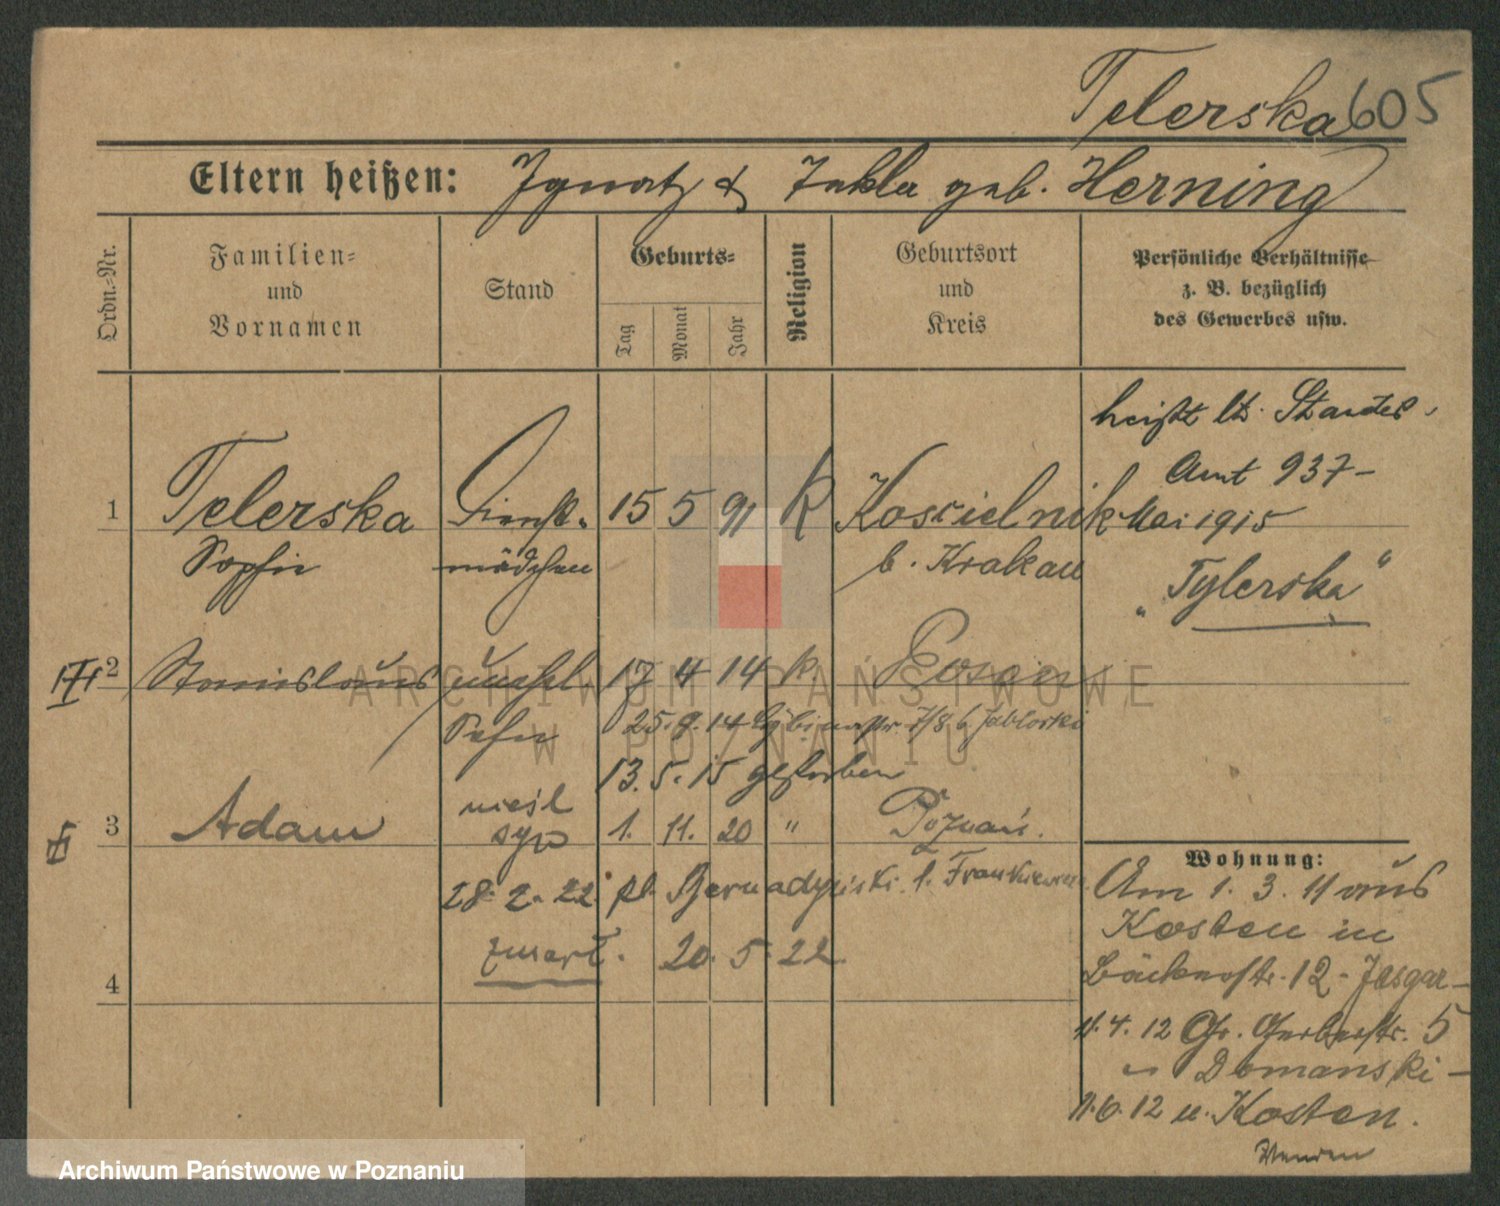 Telerska 605
Eltern heißen: Ignatz & Tekla geb. Herning
Ordn.-Nr.
Familien- und Vornamen
Stand
Geburts-
Tag
Monat
Jahr
Religion
Geburtsort und Kreis
Persönliche Verhältnisse
z. B. bezüglich
des Gewerbes usw.
heißt lt. Standes-
Amt 937-
Mai 1915
"Tylerska"
1 Telerska Dienst- 15 5 91 K Koscielnik
Sophie mädchen b. Krakau
2 Stanislaus unehel. 17 4 14 k. Posen
Sohn 25. 9. 14 7/8 b. Jablonski
13. 5. 15 gestorben
3 Adam nieśl. 1. 11. 20 " Poznań.
syn
28. 2. 22 pl. Bernadyński 1.
zmarł. 20. 5. 22
4
Wohnung:
Am 1. 3. 11 aus
Kosten in
Bäckerstr. 12 -
11. 4. 12 Gr. Gerberstr. 5
Domanski -
11. 6. 12 n. Kosten.
Wenden
ARCHIWUM PAŃSTWOWE
W POZNANIU
Archiwum Państwowe w Poznaniu